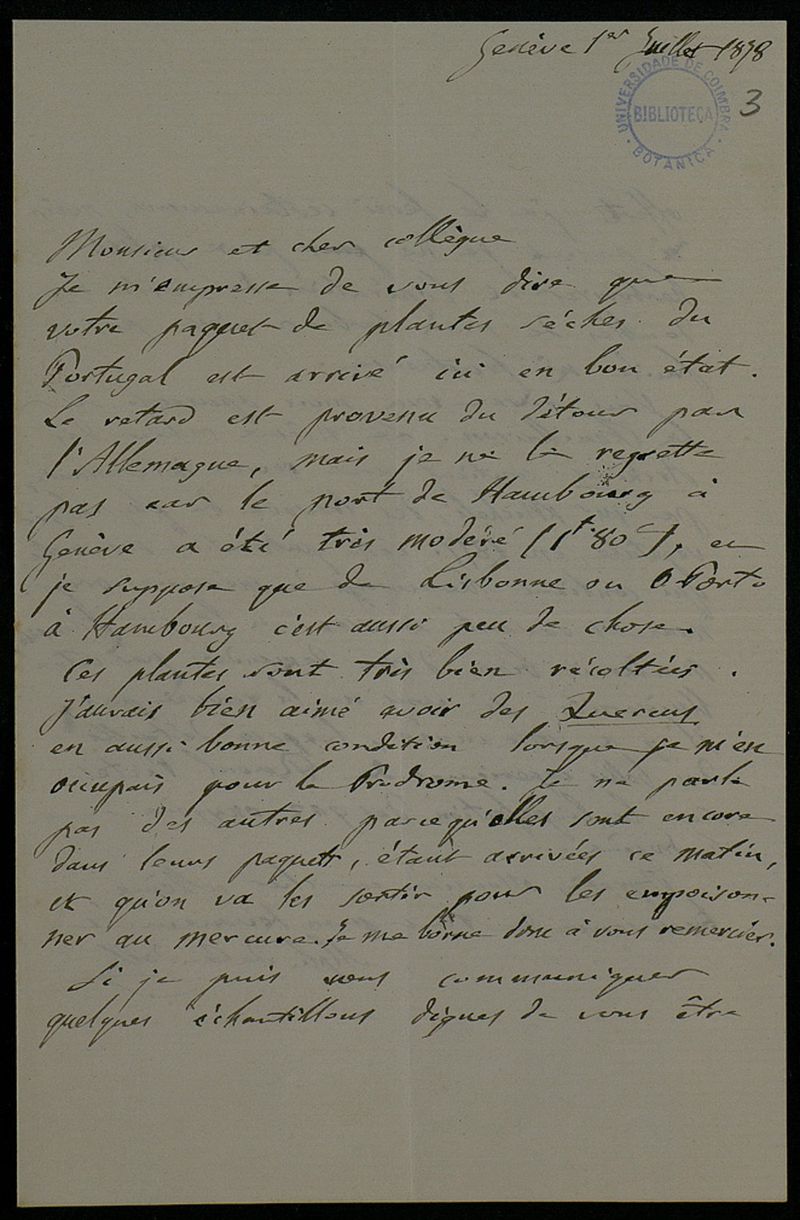 Genève 1er Juillet 1878
UNIVERSIDADE DE COIMBRA
BIBLIOTECA
BOTANICA
3
Monsieur et cher collègue
Je m'empresse de vous dire que
votre paquet de plantes sèches du
Portugal est arrivé ici en bon état.
Le retard est provenu du détour par
l'Allemagne, mais je ne le regrette
pas car le port de Hambourg à
Genève a été très modéré (1f 80c), et
je suppose que de Lisbonne ou O Porto
à Hambourg c'est aussi peu de chose.
Ces plantes sont très bien récoltées.
J'aurais bien aimé avoir des Quercus
en aussi bonne condition lorsque je m'en
occupais pour le Prodrome. Je ne parle
pas des autres parcequ'elles sont encore
dans leurs paquets, étant arrivées ce matin,
et qu'on va les sortir pour les empoison-
ner au mercure. Je me borne donc à vous remercier.
Si je puis vous communiquer
quelques échantillons dignes de vous être